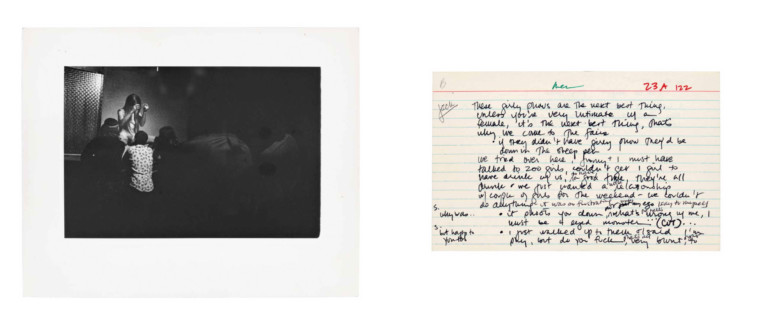 Men 23 A 122
yeah These girly shows are the next best thing.
unless you're very intimate w/ a
female, it's the next best thing, that's
why we come to the fairs
• if they didn't have girly show they'd be
down in the sheep pen
we tried over here, Jimmy & I must have
talked to 200 girls, couldn't get 1 girl to
have drink w/ us, they're all
drunk • we just wanted a relationship
w/ couple of girls for the weekend - we couldn't
do anything it was so frustrating
S. • it shoots you down, what's wrong w/ me, I
must be 4 eyed monster (CUT)...
S. • I just walked up to them & said I'm
but happy to
you too
play, but do you fuck, very blunt, to